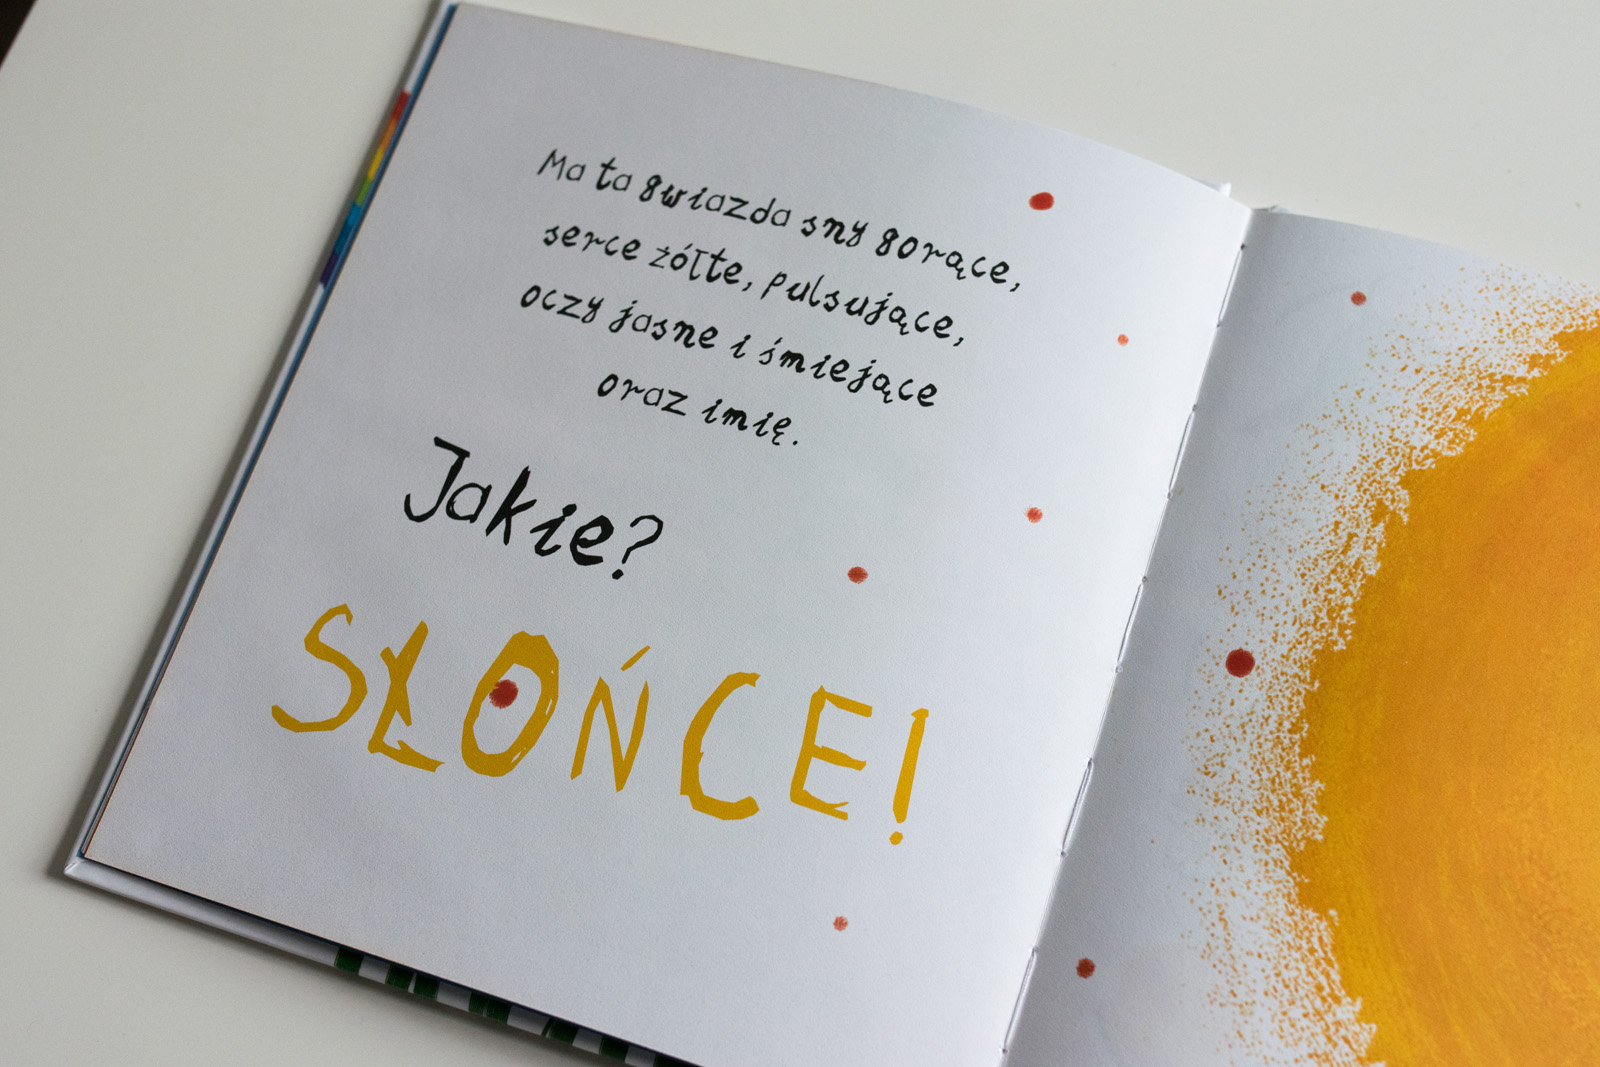 Ma ta gwiazda sny gorące,
serce żółte, pulsujące,
oczy jasne i śmiejące
oraz imię.
Jakie?
SŁOŃCE!